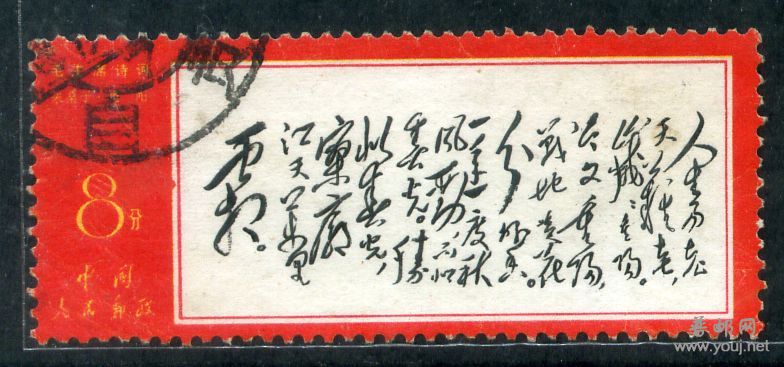 毛主席诗词
采桑子 重阳
8分
中国
人民邮政
人生易老
天难老，
岁岁重阳。
今又重阳，
战地黄花
分外香。
一年一度秋
风劲，不似
春光。胜
似春光，
寥廓
江天万里
霜。
www.youj.net